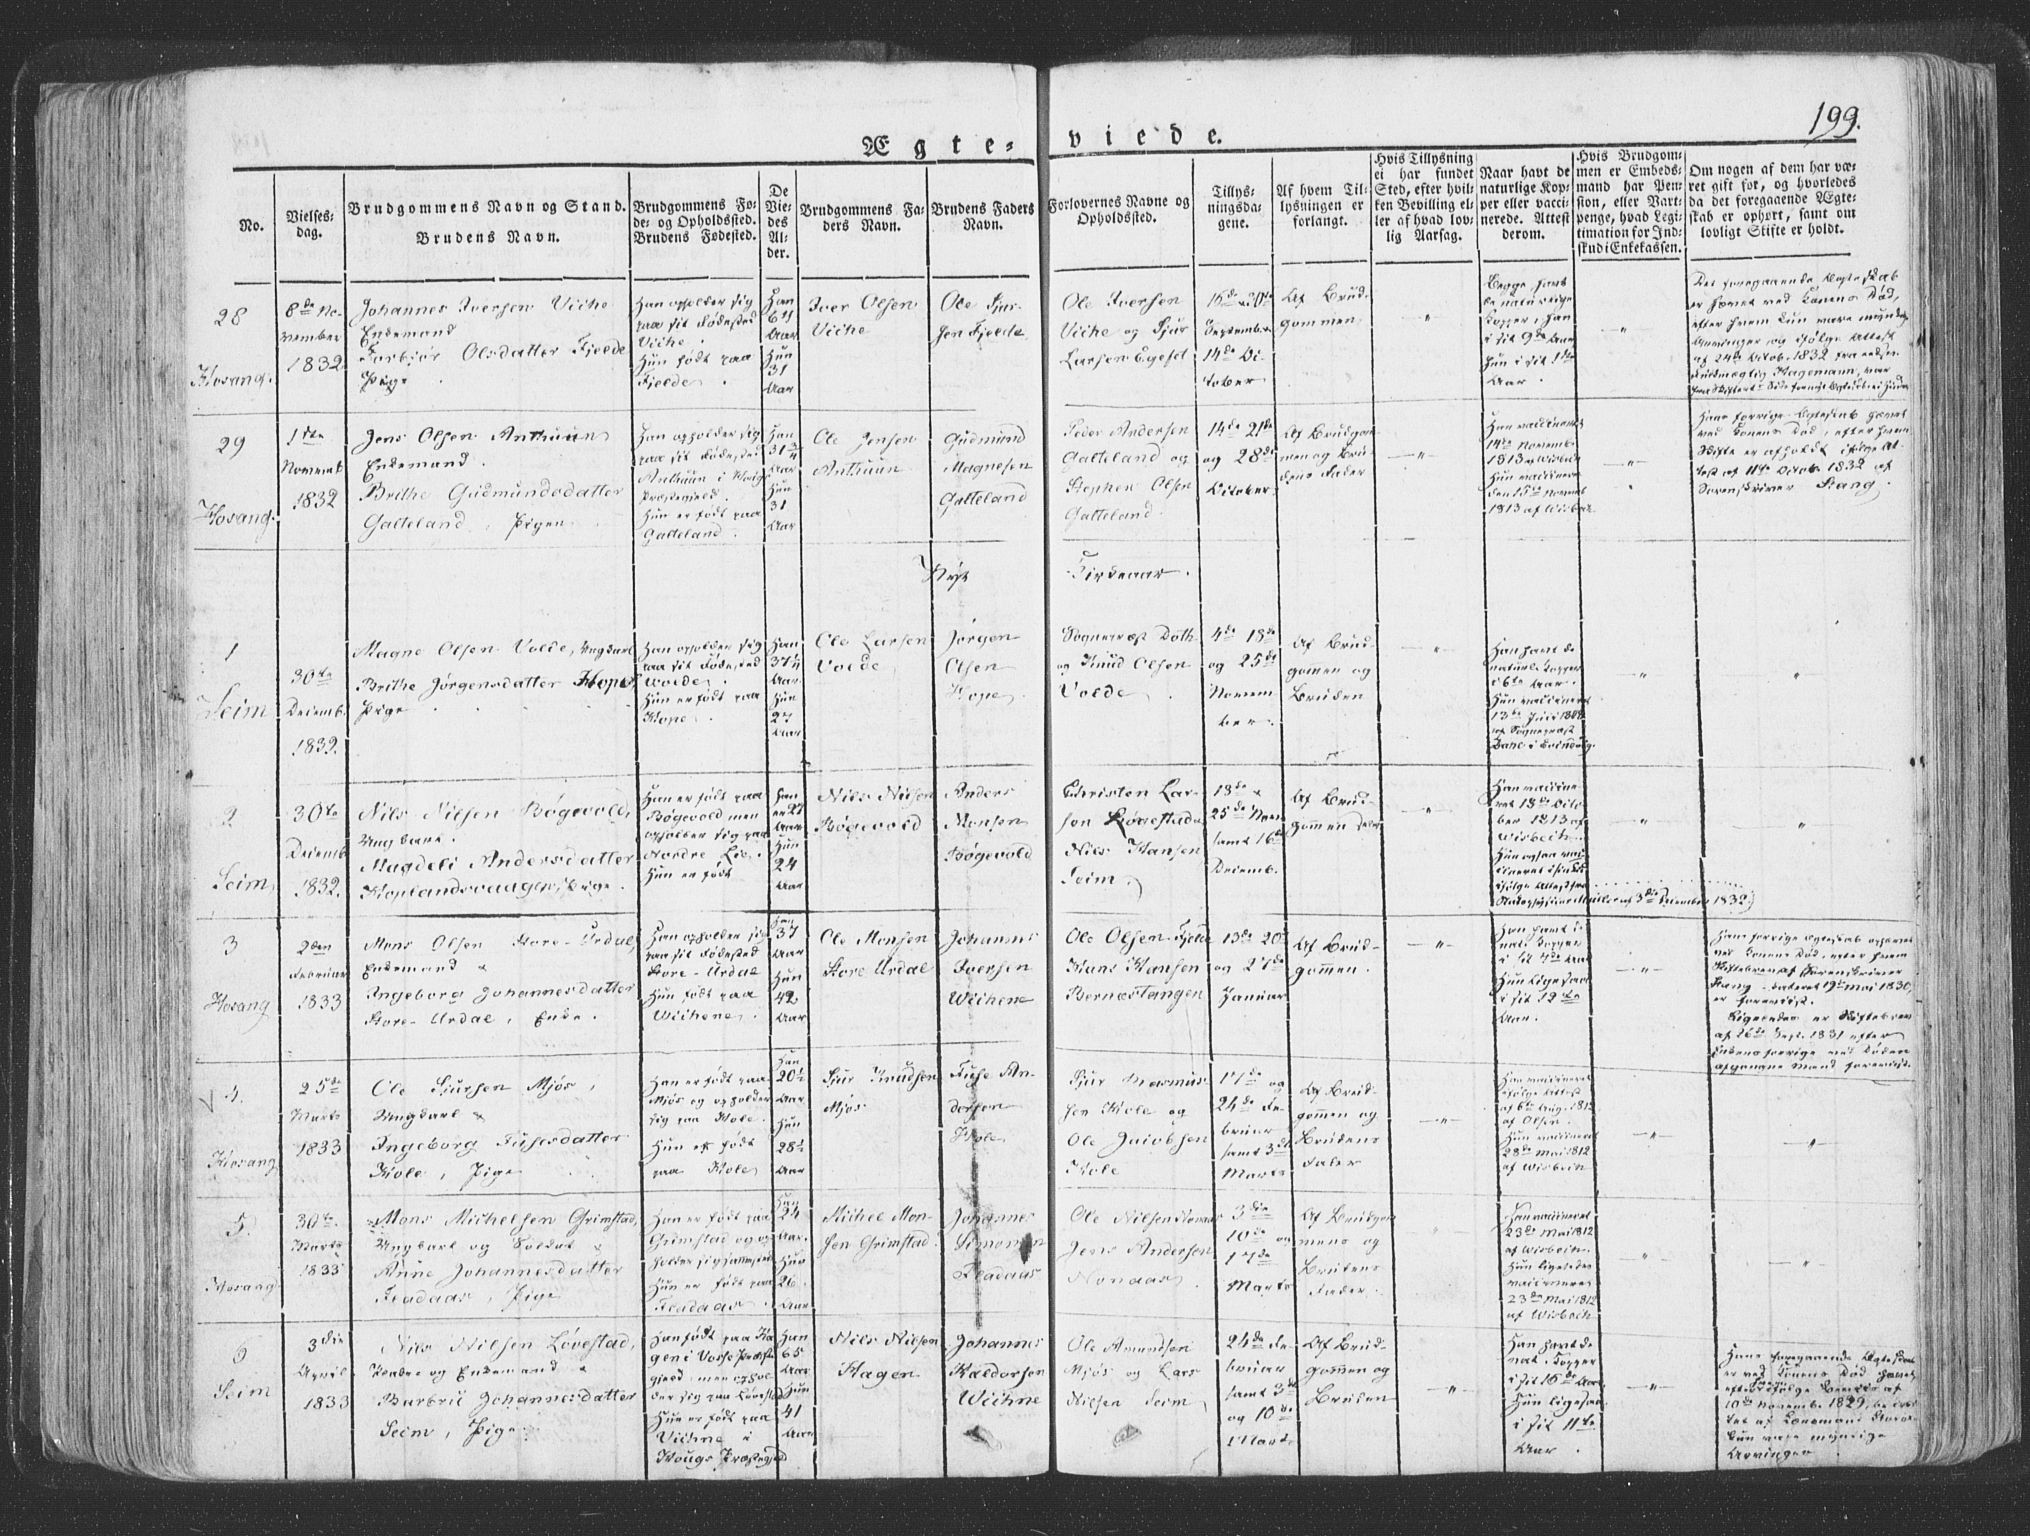 199.
Ægte-viede.
No.
Vielses-
dag.
Brudgommens Navn og Stand.
Brudens Navn.
Brudgommens Fø-
de- og Opholdssted.
Brudens Fødested.
De
Vie-
des
Al-
der.
Brudgommens Fa-
ders Navn.
Brudens Faders
Navn.
Forlovernes Navne og
Opholdssted.
Tillys-
ningsda-
gene.
Af hvem Til-
lysningen er
forlangt.
Hvis Tillysning
ei har fundet
Sted, efter hvil-
ken Bevilling el-
ler af hvad lov-
lig Aarsag.
Naar havt de
naturlige Kop-
per eller vacci-
nerede. Attest
derom.
Hvis Brudgom-
men er Embeds-
mand har Pen-
sion, eller Vart-
penge, hvad Legi-
timation for Ind-
skud i Enkekassen.
Om nogen af dem har væ-
ret gift før, og hvorledes
da det foregaaende Ægte-
skab er ophørt, samt om
lovligt Skifte er holdt.
28
Hosang.
8de No-
vember
1832
Johannes Iversen Viche
Enkemand
Torbiør Olsdatter Fjelde
Pige
Han opholder sig
paa sit Fødested
Viche.
Hun født paa
Fjelde.
Han
61
Aar
Hun
31
Aar
Iver Olsen
Viche
Ole Sjur-
sen Fjelde
Ole Iversen
Viche og Sjur
Larsen Eget
September
14de Oc-
tober
Af Brud-
gommen
"
Begge havt
de naturlige
Kopper, han
i sit 9de Aar
hun i sit 1ste
Aar.
"
Det foregaaende Ægteskab
er hævet ved Konens Død,
efter hvem kun vare myndige
Arvinger og ifølge Attest
af 24de Octob. 1832 fra
Hagemann, var
29
Hosang.
1ste
Novemb
1832
Jens Olsen Anthuun
Enkemand.
Brithe Gudmundsdatter
Galteland, Pigen
Han opholder sig
paa sit Fødested
Anthuun i Hougs
Præstegjeld.
Hun er født paa
Galteland.
Han
31 3/4
Aar
Hun
31
Aar
Ole Jensen
Anthuun
Gudmund
Magnesen
Galteland
Peder Andersen
Galteland og
Stephen Olsen
Galteland.
14de 21de
og 28de
October
Af Brudgom-
men og Bru-
dens Fader
"
Han vaccineret
14de Novemb
1813 af Wisbech
Hun vaccineret
den 15de Novemb
1813 af Wisbech
"
Hans forrige Ægteskab hævet
ved Konens Død, efter hvem
Skifte er afholdt ifølge At-
test af 11te Octob. 1832 af
Sorenskriver Stang.
Nyt Kirkeaar.
1
Seim
30te
Decemb.
1832.
Magne Olsen Volde, Ungkarl
Brithe Jørgensdatter Hope,
Pige
Han opholder sig
paa sit Fødested
Volde.
Hun er født paa
Hope.
Han
37 1/2
Aar
Hun
27
Aar
Ole Larsen
Volde
Jørgen
Olsen
Hope
Sognepræst Døth
og Knud Olsen
Volde
4de 18de
og 25de
Novem-
ber
Af Brud-
gommen og
Bruden
"
Han havt de
naturl. Kopper
i 6te Aar.
Hun vaccineret
13de Juli
af Sognepræst
"
"
2
Seim
30te
Decemb
1832.
Nils Nilsen Bøgevold,
Ungkarl.
Magdeli Andersdatter
Hoplandsvaagen, Pige.
Han er født paa
Bøgevold men
opholder sig paa
Nordre Lie.
Hun er født
Han
er 27
Aar
Hun
24
Aar
Nils Nilsen
Bøgevold
Anders
Monsen
Bøgevold
Christen Lar-
sen Løvestad
Nils Hansen
Seim.
18de
25de Nov
samt 16de
Decemb.
Af Brud-
gommen selv
"
Han vaccine-
ret 18de Octo-
ber 1813 af
Wisbech.
Hun ogsaa vac-
cineret
ifølge Attest fra
af 3die December 1832.
"
3
Hosang
2den
Februar
1833
Mons Olsen Store-Urdal,
Enkemand
Ingeborg Johannesdatter
Store-Urdal, Enke.
Han opholder sig
paa sit Fødested
Store-Urdal
Hun født paa
Wichene.
Han
37
Aar
Hun
42
Aar
Ole Monsen
Store Urdal
Johannes
Iversen
Wichene
Ole Olsen Fjelde
Hans Hansen
Bernestangen
13de 20de
og 27de
Januar
Af Brud-
gommen.
"
Han havt de
nat. Kopper
i sit 7de Aar
Hun ligesaa
i sit 12te
Aar.
"
Hans forrige Ægteskab ophævet
ved Konens Død, efter hvem
Skiftebrev af Sorenskriver
Stang dateret 19de Mai 1830,
er forevist.
Ligeledes er Skiftebrev
af 26de Sept. 1831 efter
Enkens forrige ved Døden
afgangne Mand forevist.
4.
Hosang
25de
Marts
1833
Ole Sjursen Mjøs,
Ungkarl
Ingeborg Fusesdatter
Hole, Pige
Han er født paa
Mjøs og opholder
sig paa Hole.
Hun er født
paa Hole
Han
20 1/2
Aar
Hun
28 1/2
Aar
Sjur Knudsen
Mjøs
Fuse An-
dersen
Hole
Sjur Rasmus-
sen Hole og
Ole Jacobsen
Hole
17de og
24de Fe-
bruar
samt 3de
Marts
Af Brud-
gommen og
Brudens
Fader
"
Han vaccineret
ifølge Attest
af 6te Aug. 1812
af Olsen.
Hun vaccineret
28de Mai 1812
af Wisbech
"
"
5.
Hosang
30te
Marts
1833
Mons Michelsen Grimstad,
Ungkarl og Soldat
Anne Johannesdatter
Fladaas, Pige
Han er født paa
Grimstad og op-
holder sig sammesteds
Hun er født paa
Fladaas
Han
24
Aar.
Hun
26
Aar
Michel Mon-
sen Grimstad
Johannes
Simonsen
Fladaas
Ole Nilsen
Jens Andersen
Nonaas
3die
10de og
17de
Marts
Af Brudgom-
mens og
Brudens
Fader.
"
Han vaccineret
23de Mai 1812
af Wisbech.
Hun ligeledes
vaccineret
23de Mai 1812
af Wisbech
"
"
6
Seim
3die
April
1833
Nils Nilsen Løvestad,
og Enkemand
Barbru Johannesdatter
Seim, Pige
Han født paa Ha-
gen i Vosse Præste-
gjeld men ophol-
der sig paa Løvestad
Hun er født paa
Vichne i
Hougs Præstegjeld
Han
65
Aar
Hun
41
Aar
Nils Nilsen
Hagen
Johannes
Haldorsen
Wichne
Ole Amundsen
Mjøs og Lars
Nilsen Seim
24de Fe-
bruar
samt 3de
og 10de
Marts
Af Brud-
gommen og
Bruden
"
Han havt de
nat. Kopper
i sit 16de Aar
Hun ligesaa
i sit 11te
Aar.
"
Hans foregaaende Ægteskab
er ved Konens Død hævet,
10de Novemb. 1829,
kun vare myndige
Arvinger